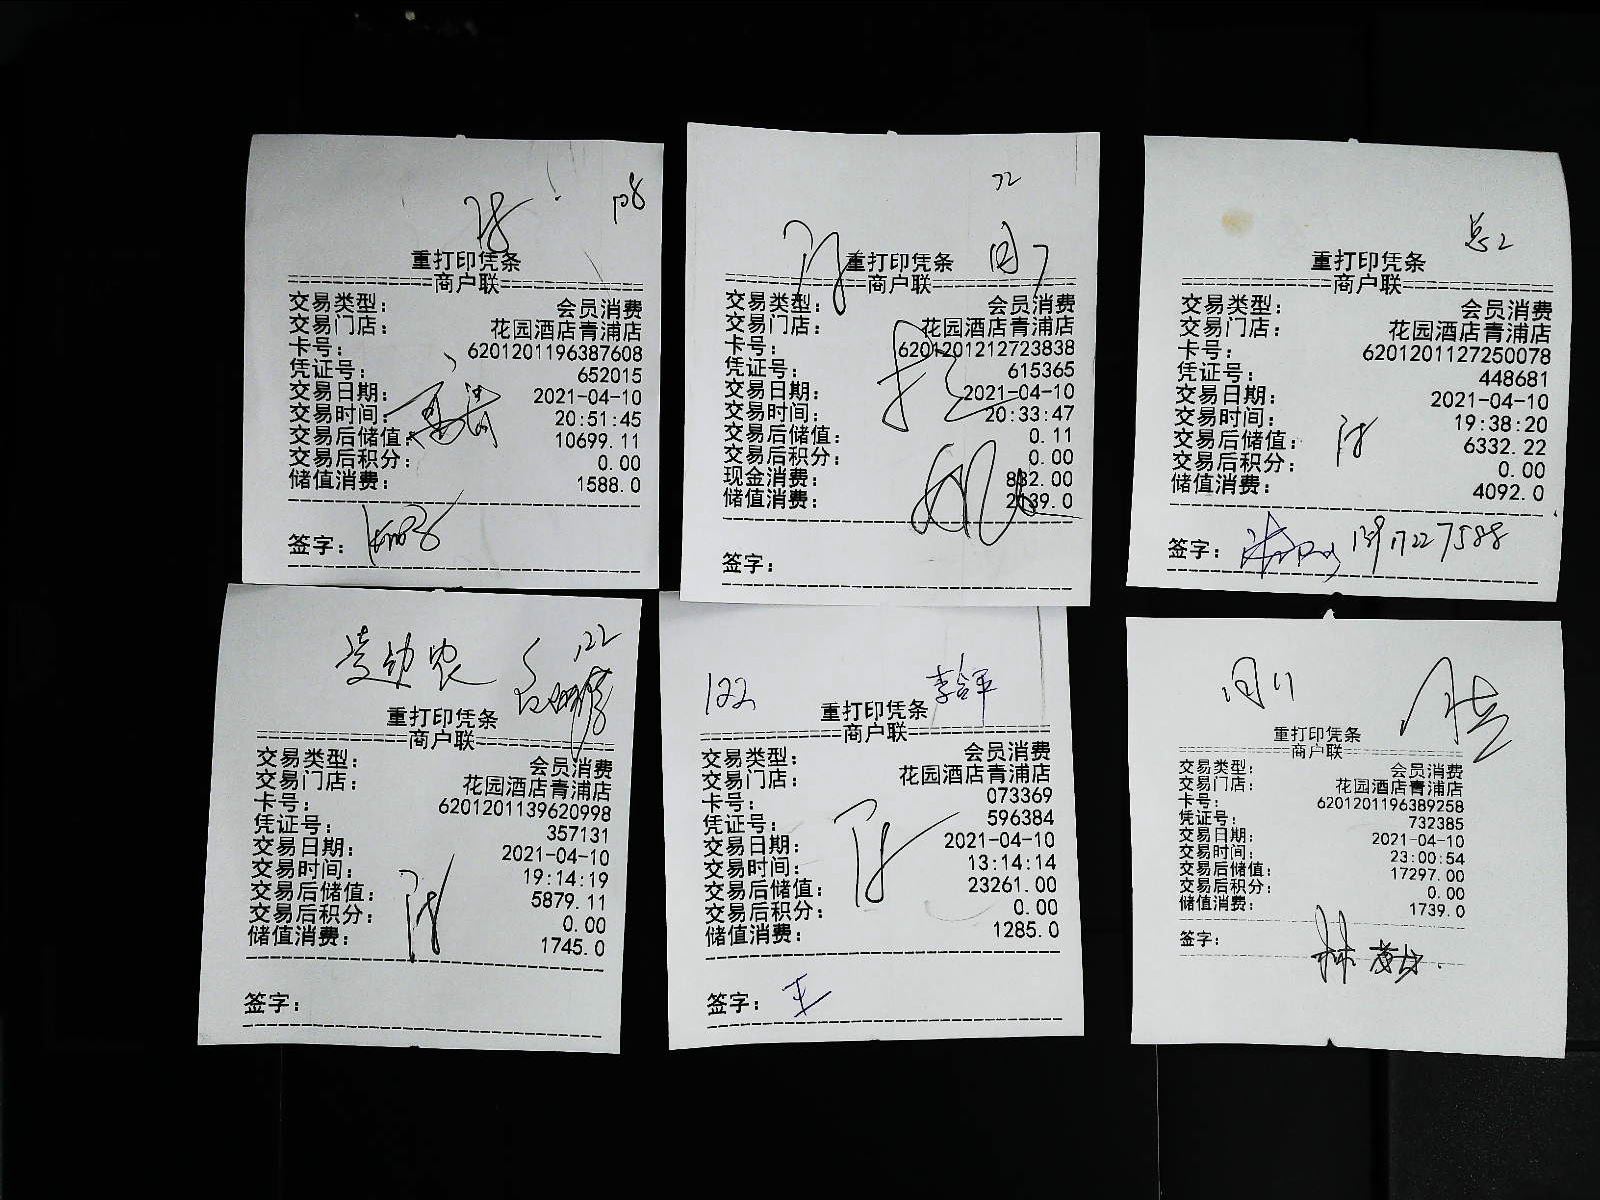 重打印凭条
商户联
交易类型： 会员消费
交易门店： 花园酒店青浦店
卡号： 6201201196387608
凭证号： 652015
交易日期： 2021-04-10
交易时间： 20:51:45
交易后储值： 10699.11
交易后积分： 0.00
储值消费： 1588.0
签字：
72
重打印凭条
商户联
交易类型： 会员消费
交易门店： 花园酒店青浦店
卡号： 6201201212723838
凭证号： 615365
交易日期： 2021-04-10
交易时间： 20:33:47
交易后储值： 0.11
交易后积分： 0.00
现金消费： 832.00
储值消费： 2139.0
签字：
总2
重打印凭条
商户联
交易类型： 会员消费
交易门店： 花园酒店青浦店
卡号： 6201201127250078
凭证号： 448681
交易日期： 2021-04-10
交易时间： 19:38:20
交易后储值： 6332.22
交易后积分： 0.00
储值消费： 4092.0
签字：
122
重打印凭条
商户联
交易类型： 会员消费
交易门店： 花园酒店青浦店
卡号： 6201201139620998
凭证号： 357131
交易日期： 2021-04-10
交易时间： 19:14:19
交易后储值： 5879.11
交易后积分： 0.00
储值消费： 1745.0
签字：
122
重打印凭条
商户联
交易类型： 会员消费
交易门店： 花园酒店青浦店
卡号： 073369
凭证号： 596384
交易日期： 2021-04-10
交易时间： 13:14:14
交易后储值： 23261.00
交易后积分： 0.00
储值消费： 1285.0
签字： 王
重打印凭条
商户联
交易类型： 会员消费
交易门店： 花园酒店青浦店
卡号： 6201201196389258
凭证号： 732385
交易日期： 2021-04-10
交易时间： 23:00:54
交易后储值： 17297.00
交易后积分： 0.00
储值消费： 1739.0
签字：